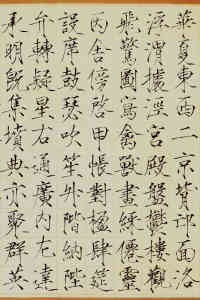 華夏東西二京背邙面洛
浮渭據涇宮殿盤鬱樓觀
飛驚圖寫禽獸畫綵僊靈
丙舍傍啓甲帳對楹肆筵
設席鼓瑟吹笙升階納陛
弁轉疑星右通廣內左達
承明既集墳典亦聚群英